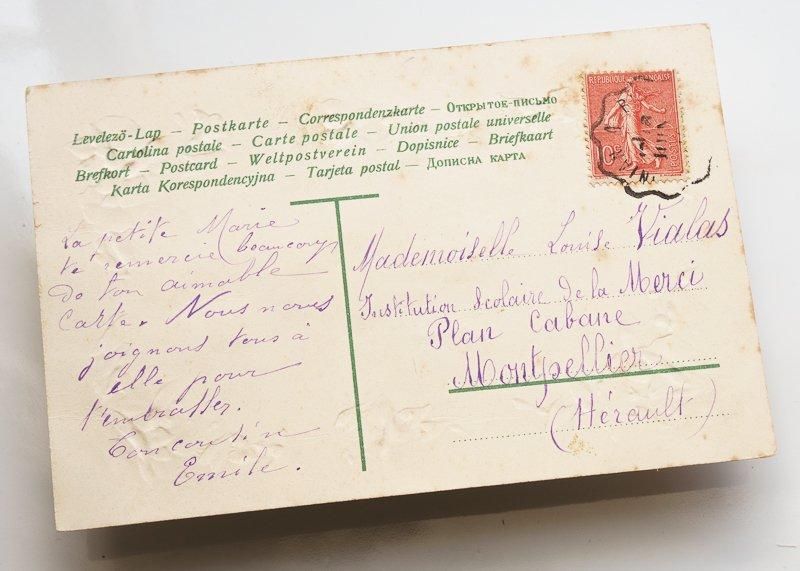 Levelező-Lap – Postkarte – Correspondenzkarte – Открытое-письмо
Cartolina postale – Carte postale – Union postale universelle
Brefkort – Postcard – Weltpostverein – Dopisnice – Briefkaart
Karta Korespondencyjna – Tarjeta postal – Дописна карта
REPUBLIQUE FRANÇAISE
10
La petite Marie
te remercie beaucoup
de ton aimable
carte. Nous nous
joignons tous à
elle pour
t'embrasser.
Ton cousin
Emile.
Mademoiselle Louise Vialas
Institution Scolaire de la Merci
Plan Cabane
Montpellier
(Hérault)